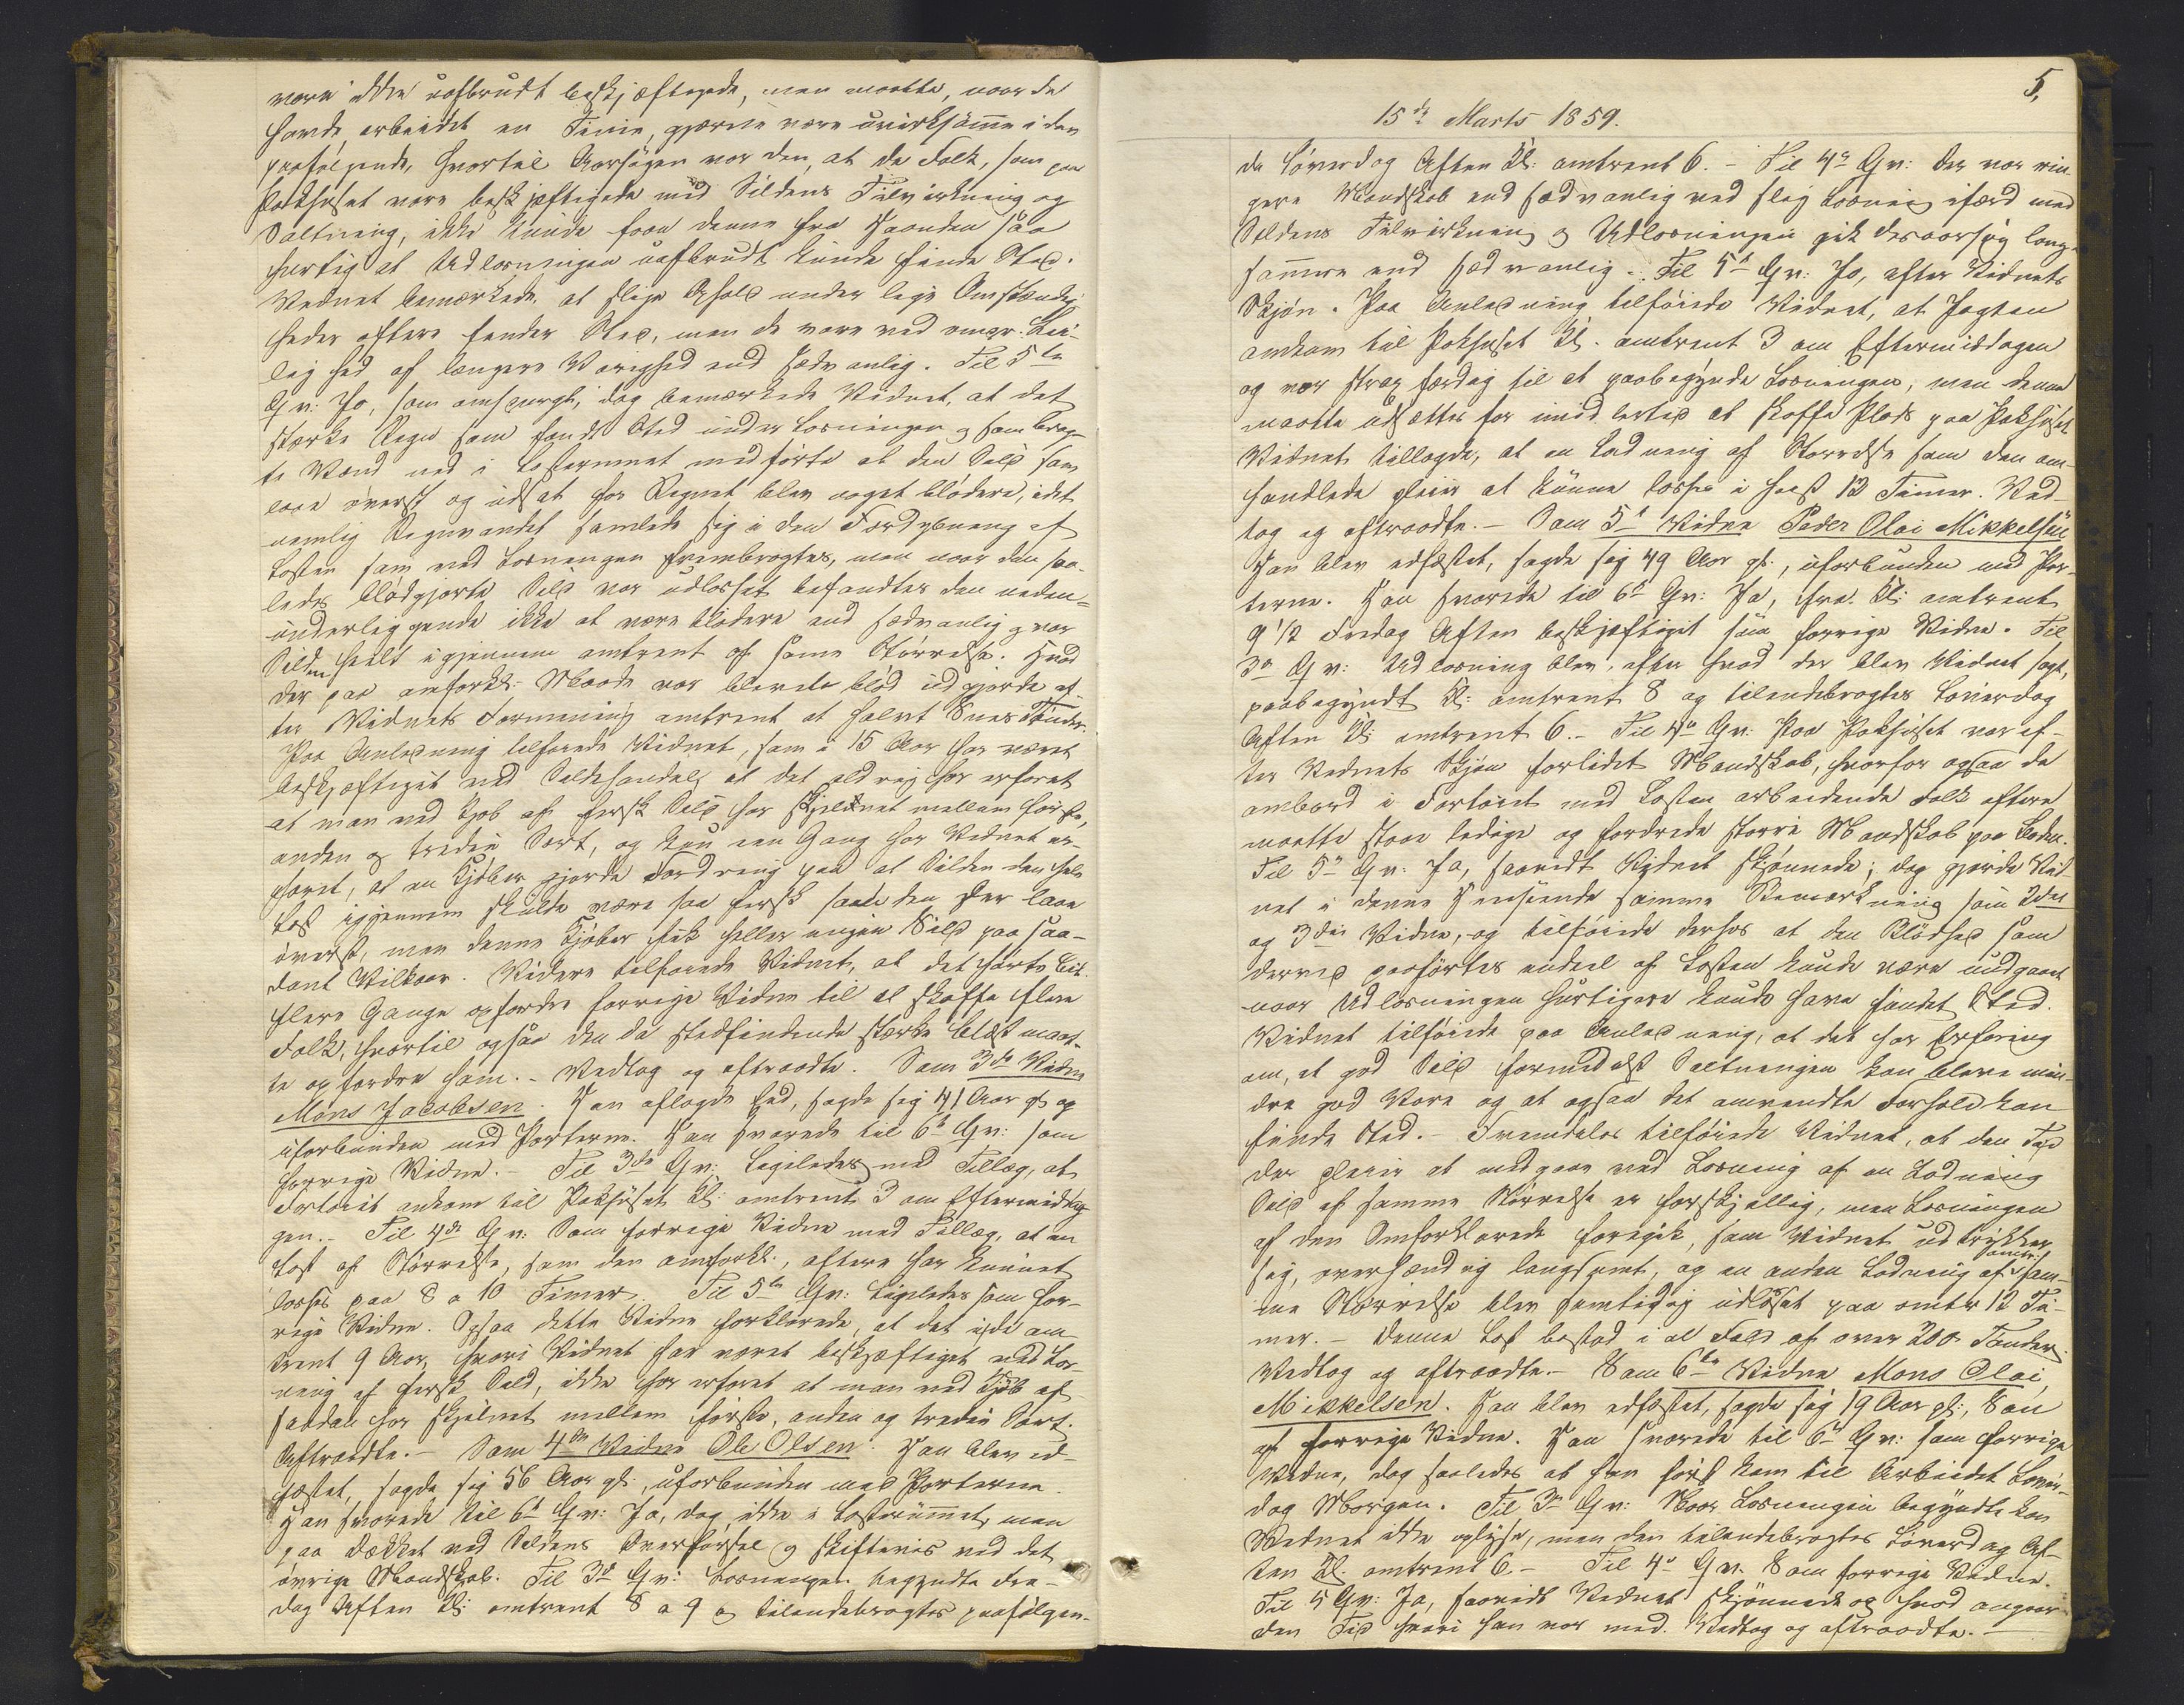 vare ikke uafbrudt beskjæftigede, men maatte, naar de
havde arbeidet en Time, gjerne være uvirksomme i den
paafølgende, hvortil Aarsagen var den, at de Folk, som paa
Pakhuset vare beskjæftigede med Sildens Tilvirkning og
Saltning, ikke kunde faae denne fra Haanden saa
hurtig at Udlosningen uafbrudt kunde finde Sted.
Vidnet bemærkede, at slige Ophold under lige Omstændig-
heder oftere finder Sted, men de vare ved omspr. Lei-
lighed af længere Varighed end sædvanlig. Til 5te
Qv: Jo, som omspurgt, dog bemærkede Vidnet, at det
stærke Regn som fandt Sted under Losningen og som brag-
te Vand ned i Lasterummet medførte at den Sild som
laae øverst og udsat for Regnet blev noget blødere, idet
nemlig Regnvandet samlede sig i den Fordybning af
Lasten som ved Losningen frembragtes, men naar den saa-
ledes blødgjorte Sild var udlosset befandtes den neden-
underliggende ikke at være blødere end sædvanlig og var
Silden heelt igjennem omtrent af samme Størrelse. Hvad
der paa omforkl. Maade var blevet blød udgjorde ef-
ter Vidnets Formening omtrent et halvt Snes Tønder.
Paa Anledning tilføiede Vidnet, som i 15 Aar har været
beskjæftiget ved Sildehandel, at det aldrig har erfaret
at man ved Kjøb af fersk Sild har skjelnet mellem første,
anden og tredie Sort, og kun een Gang har Vidnet er-
faret, at en Kjøber gjorde Fordring paa at Silden den hele
Last igjennem skulde være saa fersk som den der laae
øverst, men denne Kjøber fik heller ingen Sild paa saa-
dant Vilkaar. Videre tilføiede Vidnet, at det hørte Cit.
flere Gange opfordre forrige Vidne til at skaffe flere
Folk, hvortil ogsaa den da stedfindende stærke Blæst maat-
te opfordre ham. - Vedtog og aftraadte. Som 3de Vidne
Mons Jacobsen. Han aflagde Eed, sagde sig 41 Aar gl. og
uforbunden med Parterne. Han svarede til 6te Qv: som
forrige Vidne. - Til 3de Qv: Ligeledes med Tillæg, at
Fartøiet ankom til Pakhuset Kl: omtrent 3 om Eftermidda-
gen. - Til 4de Qv: Som forrige Vidne med Tillæg, at en
Last af Størrelse, som den omforkl., oftere har kunnet
losses paa 8 a 10 Timer. Til 5te Qv: Ligeledes som for-
rige Vidne. Ogsaa dette Vidne forklarede, at det i de om-
trent 9 Aar, hvori Vidnet har været beskjæftiget ved Los-
ning af fersk Sild, ikke har erfaret at man ved Kjøb af
saadan har skjelnet mellem første, anden og tredie Sort.
Aftraadte. - Som 4de Vidne Ole Olsen. Han blev ed-
fæstet, sagde sig 56 Aar gl., uforbunden med Parterne.
Han svarede til 6te Qv: Ja, dog ikke i Lastrummet, men
paa Dækket ved Sildens Overførsel og skiftevis ved det
øvrige Mandskab. Til 3de Qv: Losningen begyndte Fre-
dag Aften Kl: omtrent 8 a 9 og tilendebragtes paafølgen-
5,
15de Marts 1859.
de Løverdag Aften Kl: omtrent 6. - Til 4de Qv: Der var rin-
gere Mandskab end sædvanlig ved slig Losning ifærd med
Sildens Tilvirkning og Udlosningen gik desaarsag lang-
sommere end sædvanlig. - Til 5te Qv: Jo, efter Vidnets
Skjøn. Paa Anledning tilføiede Vidnet, at Jagten
ankom til Pakhuset Kl. omtrent 3 om Eftermiddagen
og var strax færdig til at paabegynde Losningen, men denne
maatte udsættes for imidlertid at skaffe Plads paa Pakhuset.
Vidnet tillagde, at en Ladning af Størrelse som den om-
handlede pleier at kunne losses i høist 12 Timer. Ved-
tog og aftraadte. - Som 5te Vidne Peder Olai Mikkelsen
Han blev edfæstet, sagde sig 49 Aar gl., uforbunden med Par-
terne. Han svarede til 6te Qv: Ja, fra Kl: omtrent
9 1/2 Fredag Aften beskjæftiget som forrige Vidne. Til
3de Qv: Udlosning blev, efter hvad der blev Vidnet sagt,
paabegyndt Kl: omtrent 8 og tilendebragtes Løverdag
Aften Kl: omtrent 6. - Til 4de Qv: Paa Pakhuset var ef-
ter Vidnets Skjøn forlidet Mandskab, hvorfor ogsaa de
ombord i Fartøiet med Lasten arbeidende Folk oftere
maatte staae ledige og fordrede større Mandskab paa Boden.
Til 5te Qv: Ja, saavidt Vidnet skjønnede; dog gjorde Vid-
net i denne Henseende samme Bemærkning som 2det
og 3die Vidne, og tilføiede derhos at den Blødhed som
derved paaførtes endeel af Lasten kunde være undgaaet
naar Udlosningen hurtigere kunde have fundet Sted.
Vidnet tilføiede paa Anledning, at det har Erfaring
om, at god Sild formedelst Saltningen kan blive min-
dre god Vare og at ogsaa det omvendte Forhold kan
finde Sted. - Fremdeles tilføiede Vidnet, at den Tid
der pleier at medgaae ved Losning af en Ladning
Sild af samme Størrelse er forskjellig, men Losningen
af den Omforklarede foregik, som Vidnet udtrykker
sig, overhændig langsomt, og en anden Ladning af omtr: sam-
me Størrelse blev samtidig udlosset paa omtr 12 Ti-
mer. - Denne Last bestod i al Fald af over 200 Tønder.
Vedtog og aftraadte. - Som 6te Vidne Mons Olai
Mikkelsen. Han blev edfæstet, sagde sig 19 Aar gl., Søn
af forrige Vidne. Han svarede til 6te Qv: som forrige
Vidne, dog saaledes at han først kom til Arbeidet Løver-
dag Morgen. Til 3de Qv: Naar Losningen begyndte kan
Vidnet ikke oplyse, men den tilendebragtes Løverdag Af-
ten Kl. omtrent 6. - Til 4de Qv. Som forrige Vidne.
Til 5 Qv: Ja, saavidt Vidnet skjønnede og hvad angaar
den Tid hvori han var med. Vedtog og aftraadte. -